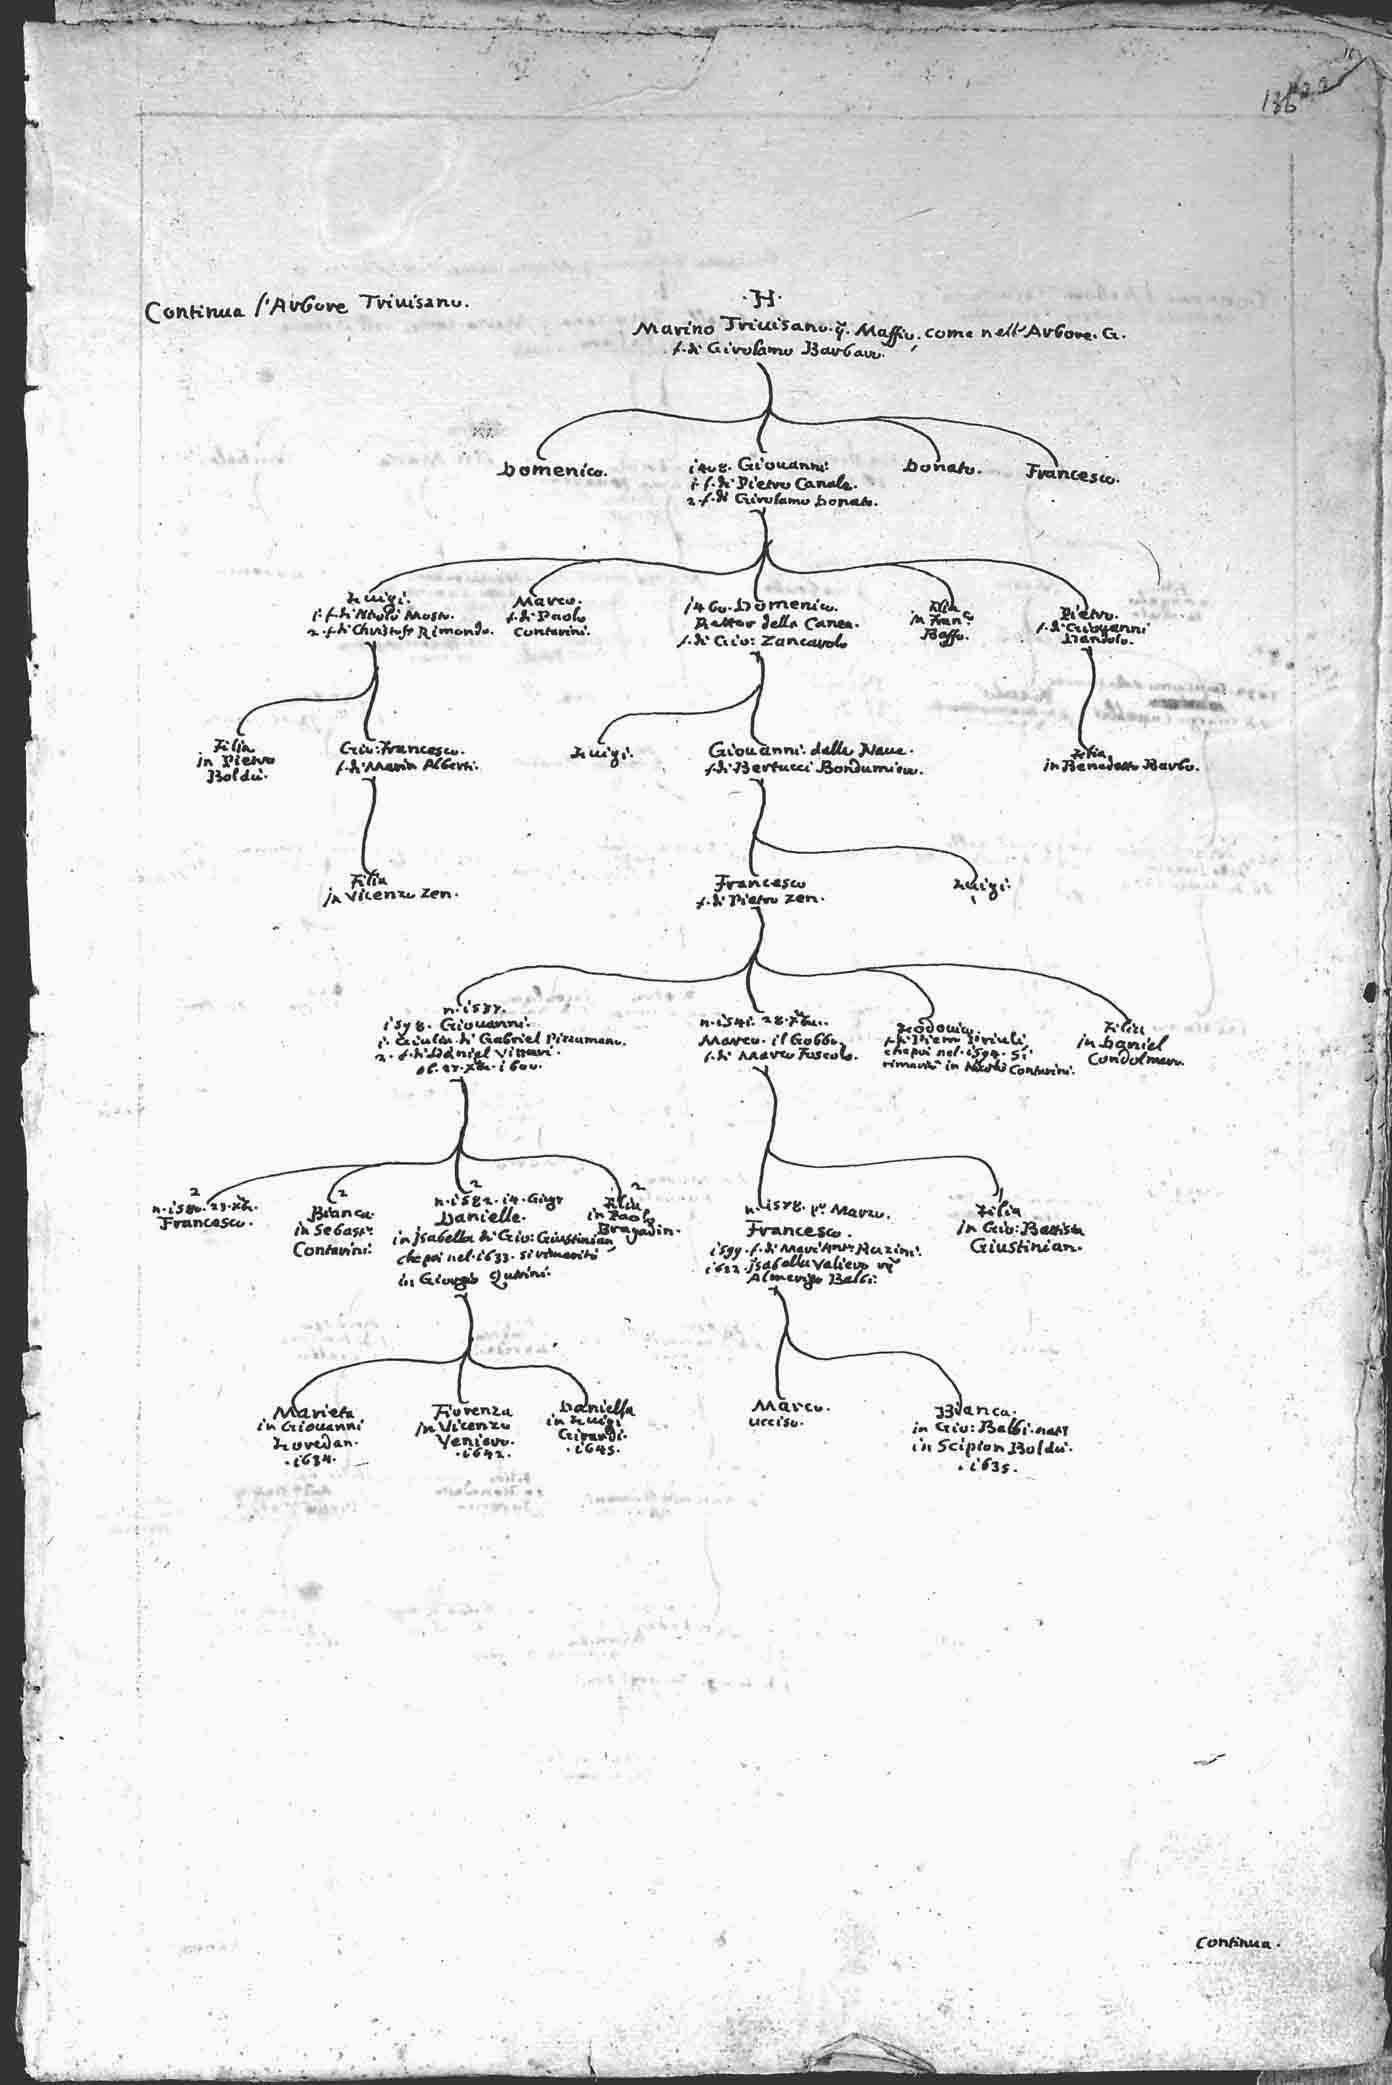 136
Continua l'Arbore Trivisano.
.H.
Marino Trivisano. q. Maffio, come nell'Arbore. G.
f. di Girolamo Barbaro.
Domenico.
1408. Giovanni
1. f. di Pietro Canale.
2. f. di Girolamo Donato.
Donato.
Francesco.
Luigi.
1. f. di Nicolò Mosto.
2. f. di Christofo Rimondo.
Marco.
f. di Paolo
Contarini.
1460. Domenico.
Rettor della Canea.
f. di Gio: Zancarolo
Filia
in Franc.o
Baffo.
Pietro.
f. di Giovanni
Dandolo.
Filia
in Pietro
Boldù.
Gio: Francesco.
f. di Marin Alberti.
Luigi.
Giovanni. dalla Nave.
f. di Bertucci Bondumier.
Filia
in Benedetto Barbo.
Filia
in Vicenzo Zen.
Francesco
f. di Pietro Zen.
Luigi.
n. 1537.
1598. Giovanni.
1. Giulia. di Gabriel Pizzamano.
2. f. di Daniel Vitturi.
ob. 27. Xbre. 1600.
n. 1541. 28. Xbre.
Marco. il Gobbo.
f. di Marco Foscolo.
f. di Piero Priuli
che poi nel. 1598. si
rimaritò in Nicolò Contarini.
Filia
in Daniel
Condolmero.
2
n. 1580. 23. Xbre.
Francesco.
2
Bianca
in Sebast.
Contarini.
2
n. 1582. 14. Giug.
Danielle.
in Isabella di Gio: Giustinian
che poi nel. 1633. si rimaritò
in Giorgio Querini.
2
Filia
in Paolo
Bragadin.
n. 1578. p.o Marzo.
Francesco.
1599. f. di Marc'Ant.o Ruzini.
1622. Isabella Valiero
Almerigo Balbi.
Filia
in Gio: Battista
Giustinian.
Marieta
in Giovanni
Loredan.
.1634.
Fiorenza
in Vicenzo
Veniero.
.1642.
Daniella
in Luigi
Girardi.
.1645.
Marco.
ucciso.
Bianca.
in Gio: Balbi.
in Scipion Boldù.
.1635.
Continua.